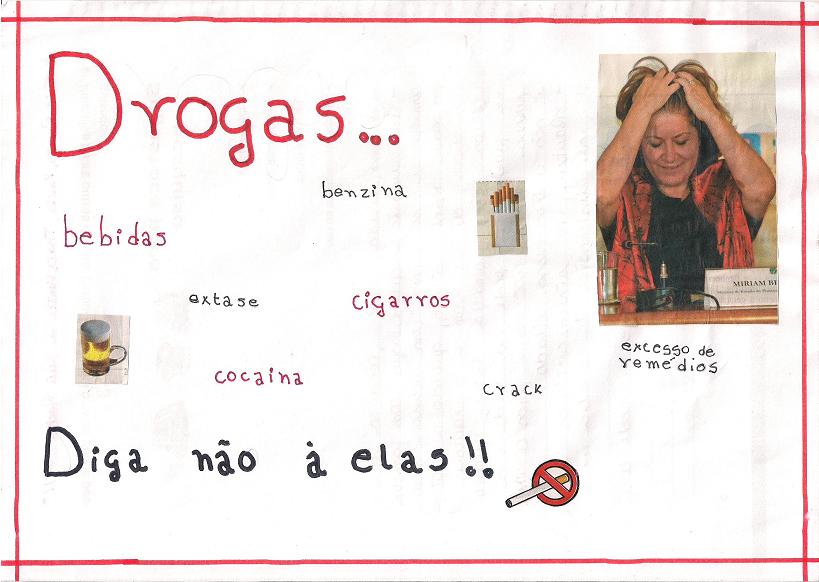 Drogas...
benzina
bebidas
extase
cigarros
excesso de
remédios
cocaina
crack
Diga não à elas!!
MIRIAM BE